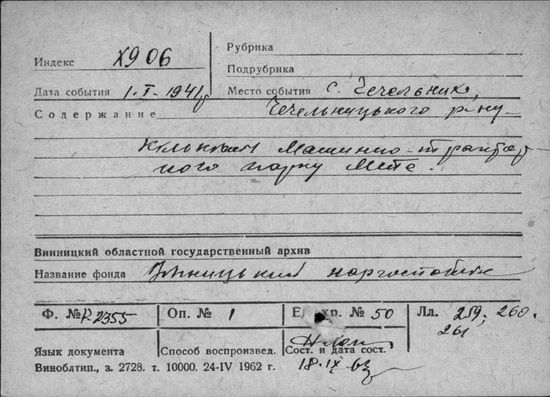 Индекс Х906
Рубрика
Подрубрика
Дата события 1.I.1941 Место события с. Чечельник,
Содержание Чечельницького р-ну
Машинно-трактор-
ного парку МТС.
Винницкий областной государственный архив
Название фонда Вінницький
Ф. № Р-2355 Оп. № 1 Ед. хр. № 50 Лл. 259; 260.
261
Язык документа Способ воспроизвед. Сост. и дата сост.
18.IX 63
Виноблтип., з. 2728. т. 10000. 24-IV 1962 г.